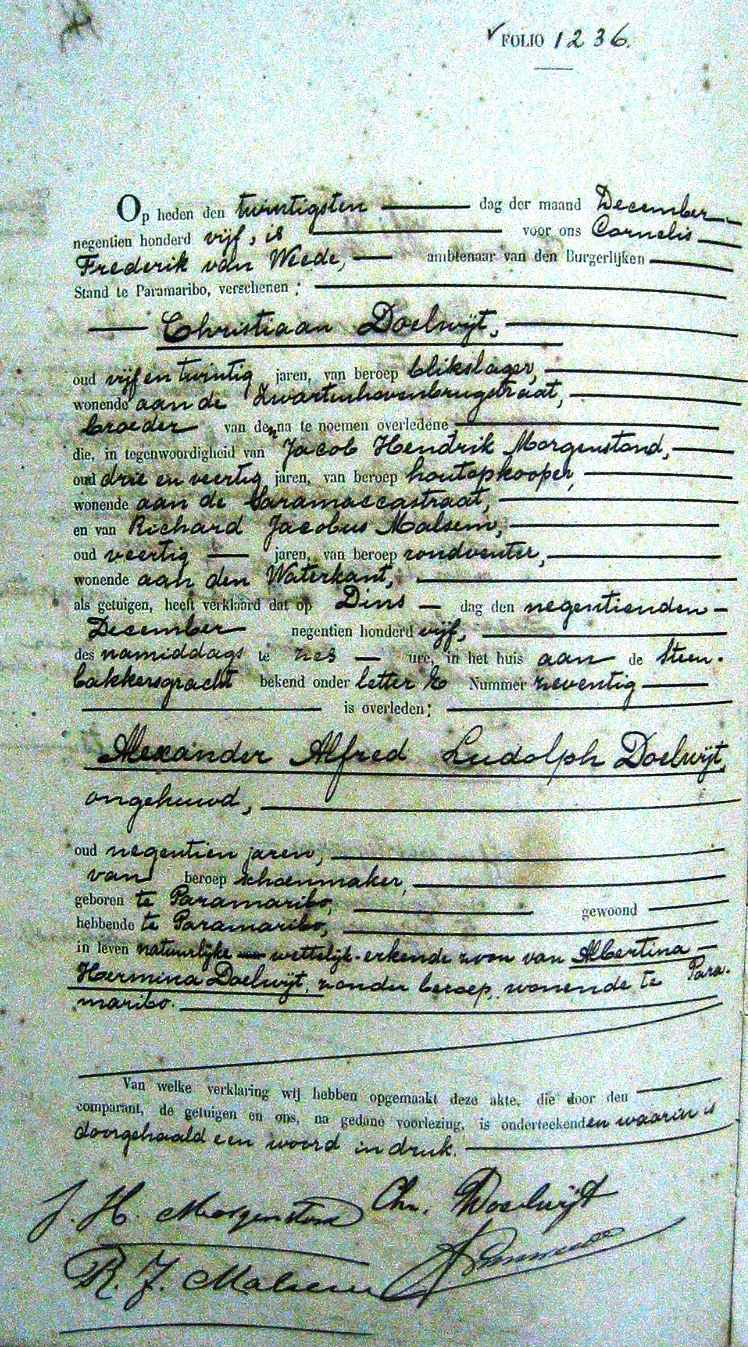 FOLIO 1236.
Op heden den twintigsten dag der maand December
negentien honderd vijf, is voor ons Cornelis
Frederik van Wiede, ambtenaar van den Burgerlijken
Stand te Paramaribo, verschenen:
Christiaan Doelwijt,
oud vijf en twintig jaren, van beroep blikslager,
wonende aan de Zwartenhovenbrugstraat,
broeder van den na te noemen overledene
die, in tegenwoordigheid van Jacob Hendrik Morgenstond,
oud drie en veertig jaren, van beroep houtopkooper,
wonende aan de Saramaccastraat,
en van Richard Jacobus Malsem,
oud veertig jaren, van beroep rondventer,
wonende aan den Waterkant,
als getuigen, heeft verklaard dat op Dins dag den negentienden
December negentien honderd vijf,
des namiddags te zes ure, in het huis aan de Steen-
bakkersgracht bekend onder letter Nummer zeventig
is overleden:
Alexander Alfred Ludolph Doelwijt,
ongehuwd,
oud negentien jaren,
van beroep schoenmaker,
geboren te Paramaribo, gewoond
hebbende te Paramaribo,
in leven natuurlijke wettelijk-erkende zoon van Albertina
Hermina Doelwijt, zonder beroep, wonende te Para-
maribo.
Van welke verklaring wij hebben opgemaakt deze akte, die door den
comparant, de getuigen en ons, na gedane voorlezing, is onderteekend en waarin is
doorgehaald een woord in druk.
J. H. Morgenstond Chr. Doelwijt
R. J. Malsem